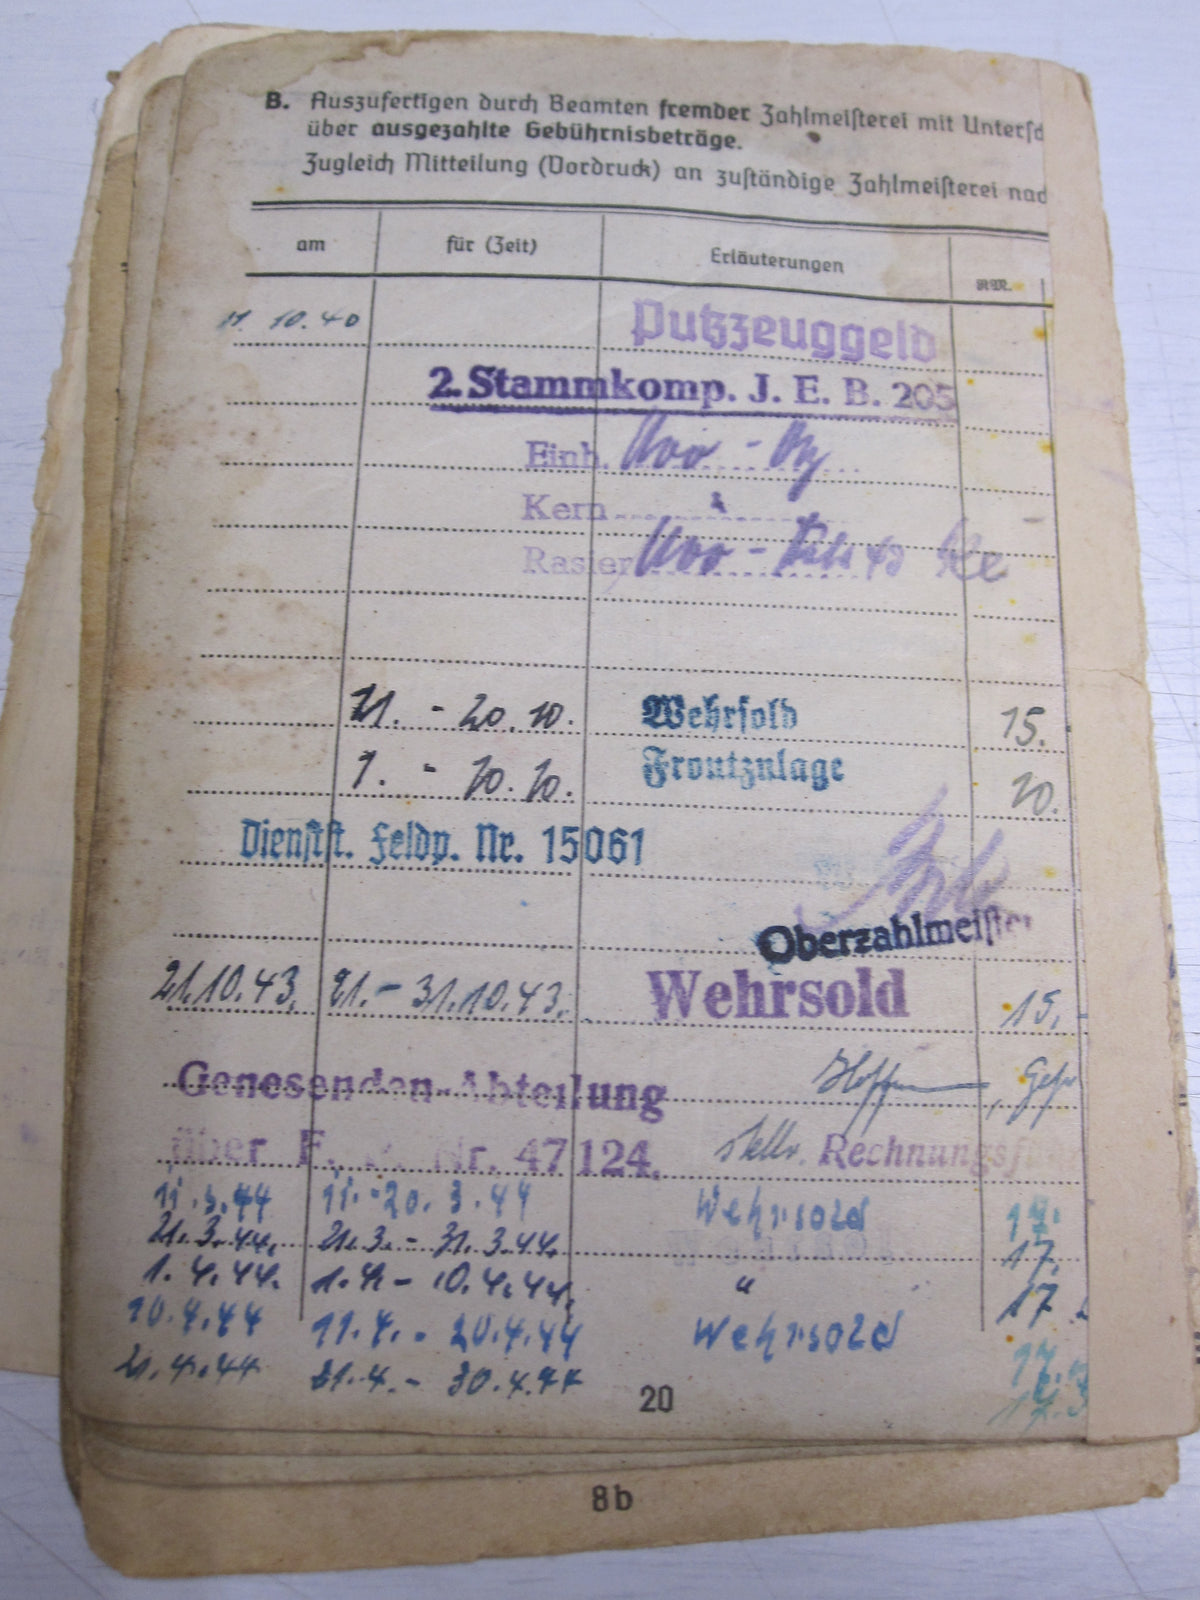 B. Auszufertigen durch Beamten fremder Zahlmeisterei mit Untersc
über ausgezahlte Gebührnisbeträge.
Zugleich Mitteilung (Vordruck) an zuständige Zahlmeisterei nac
am für (Zeit) Erläuterungen RM.
11. 10. 40 Putzzeuggeld
2. Stammkomp. J. E. B. 205
Einh.
Kern
Rasier
21. - 20. 10. Wehrsold 15.
1. - 10. 10. Frontzulage 10.
Dienstst. Feldp. Nr. 15061
Oberzahlmeister
21.10.43. 21. - 31.10.43. Wehrsold 15.-
Genesenden-Abteilung Gefr
über F. P. Nr. 47124. stellv. Rechnungsfü
11.3.44 11.-20.3.44 Wehrsold 17.
21.3.44. 21.3. - 31.3.44. 17.
1.4.44. 1.4. - 10.4.44. " 17
10.4.44 11.4. - 20.4.44 Wehrsold 17.
21.4.44 21.4. - 30.4.44 17.
20
8b